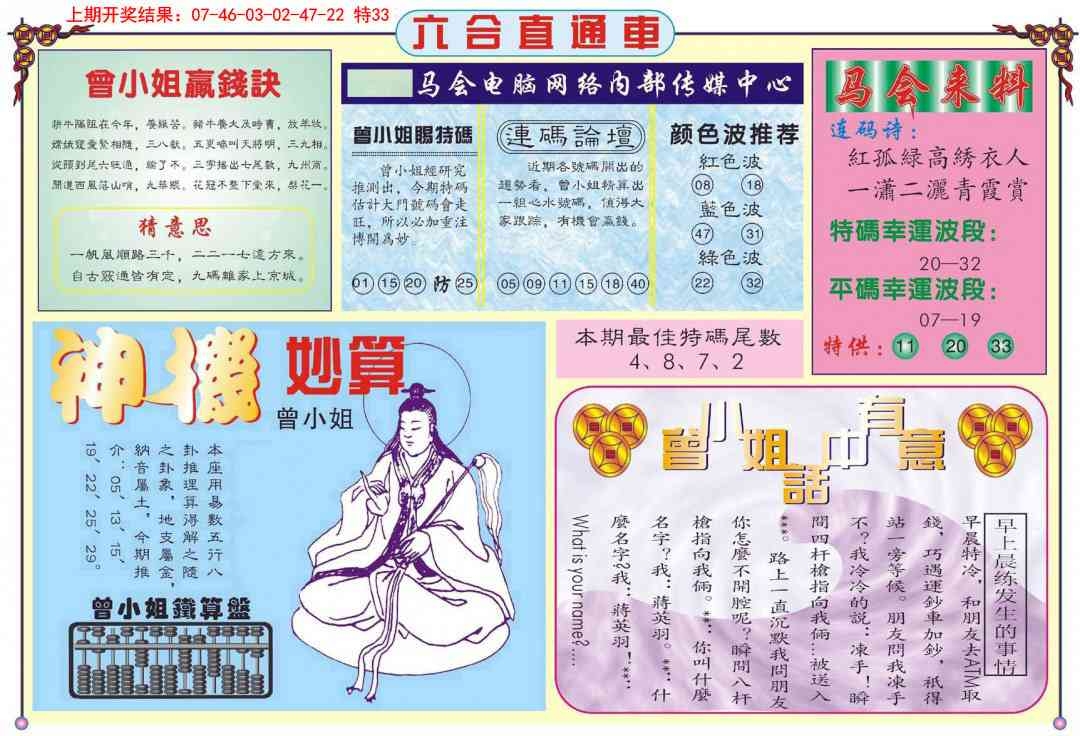 上期开奖结果：07-46-03-02-47-22 特33
六合直通車
曾小姐贏錢訣
猜意思
一帆風順路三千，二二一七遠方來。
自古窮通皆有定，九碼離家上京城。
马会电脑网络内部传媒中心
曾小姐賜特碼
曾小姐經研究
推測出，今期特碼
估計大門號碼會走
旺，所以必加重注
博開為妙。
01 15 20 防 25
連碼論壇
近期各號碼開出的
趨勢看，曾小姐精算出
一組心水號碼，值得大
家跟踪，有機會贏錢。
05 09 11 15 18 40
颜色波推荐
紅色波
08 18
藍色波
47 31
綠色波
22 32
马会来料
连码诗：
紅孤緑高綉衣人
一瀟二灑青霞賞
特碼幸運波段：
20—32
平碼幸運波段：
07—19
特供：11 20 33
神機妙算
曾小姐
本座用易數五行八
卦推理算得解之隨
之卦象，地支屬金，
納音屬土，今期推
介：05、13、15、
19、22、25、29。
曾小姐鐵算盤
本期最佳特碼尾數
4、8、7、2
曾小姐話中有意
早上晨练发生的事情
早晨特冷，和朋友去ATM取
錢，巧遇運鈔車加鈔，祇得
站一旁等候。朋友問我凍手
不？我冷冷的説：凍手！瞬
間四杆槍指向我倆…被送入
***。路上一直沉默我問朋友
你怎麼不開腔呢？瞬間八杆
槍指向我倆。**：你叫什麼
名字？我：蔣英羽。**：什
麼名字?我：蔣英羽！**：
What is your name?....